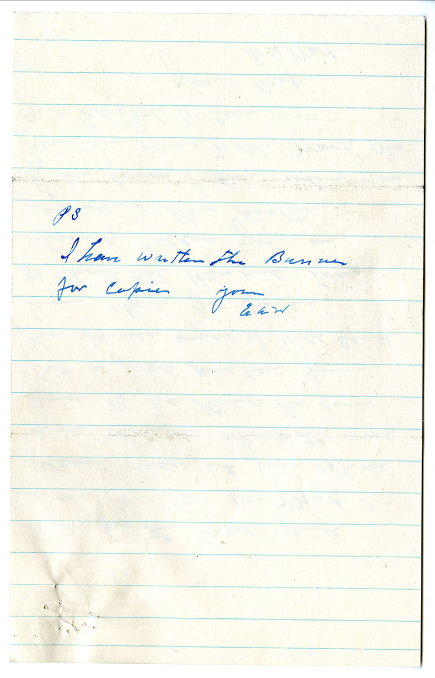 PS
I have written the Banner
for copies yours
EWW